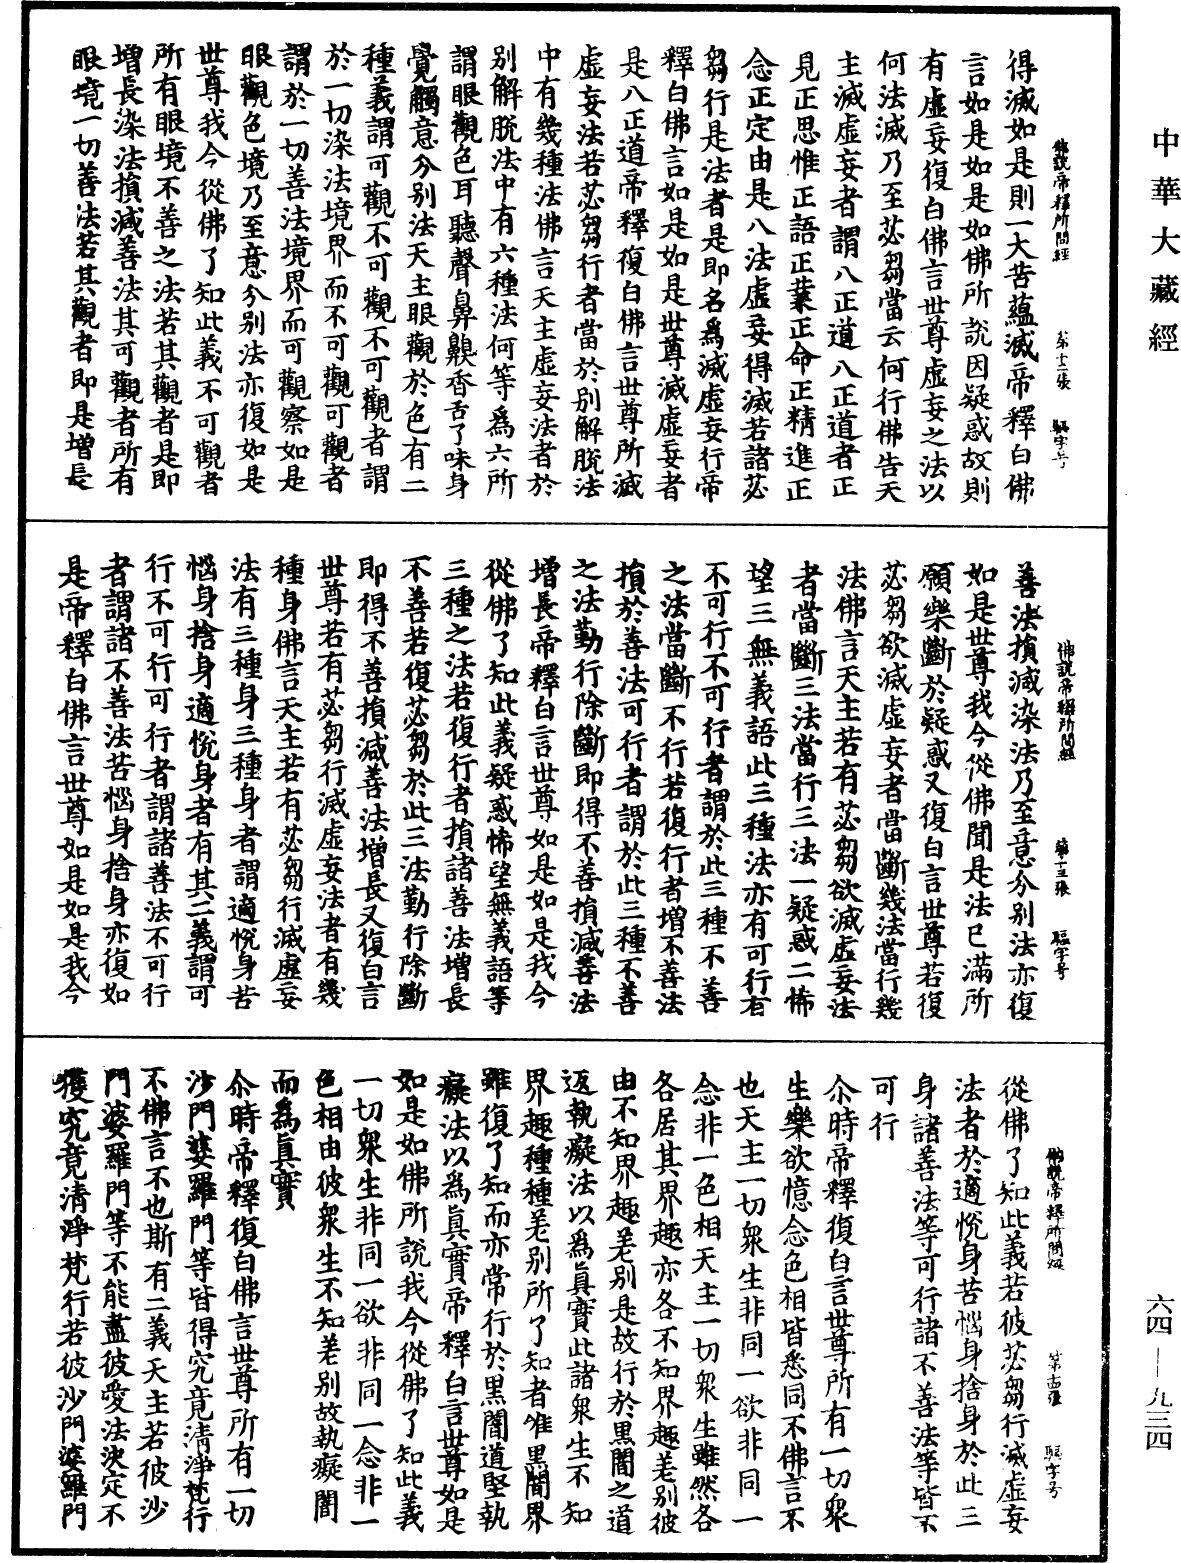 中華大藏經
佛說帝釋所問經　第十二張　驅字号
得滅如是則一大苦蘊滅帝釋白佛
言如是如是如佛所說因疑惑故則
有虛妄復白佛言世尊虛妄之法以
何法滅乃至苾芻當云何行佛告天
主滅虛妄者謂八正道八正道者正
見正思惟正語正業正命正精進正
念正定由是八法虛妄得滅若諸苾
芻行是法者是即名爲滅虛妄行帝
釋白佛言如是如是世尊滅虛妄者
是八正道帝釋復白佛言世尊所滅
虛妄法若苾芻行者當於別解脫法
中有幾種法佛言天主虛妄法者於
別解脫法中有六種法何等爲六所
謂眼觀色耳聽聲鼻齅香舌了味身
覺觸意分別法天主眼觀於色有二
種義謂可觀不可觀不可觀者謂
於一切染法境界而不可觀可觀者
謂於一切善法境界而可觀察如是
眼觀色境乃至意分別法亦復如是
世尊我今從佛了知此義不可觀者
所有眼境不善之法若其觀者是即
增長染法損減善法其可觀者所有
眼境一切善法若其觀者即是增長
佛說帝釋所問經　第十三張　驅字号
善法損減染法乃至意分別法亦復
如是世尊我今從佛聞是法已滿所
願樂斷於疑惑又復白言世尊若復
苾芻欲滅虛妄者當斷幾法當行幾
法佛言天主若有苾芻欲滅虛妄法
者當斷三法當行三法一疑惑二悕
望三無義語此三種法亦有可行有
不可行不可行者謂於此三種不善
之法當斷不行若復行者增不善法
損於善法可行者謂於此三種不善
之法勤行除斷即得不善損減善法
增長帝釋白言世尊如是如是我今
從佛了知此義疑惑悕望無義語等
三種之法若復行者損諸善法增長
不善若復苾芻於此三法勤行除斷
即得不善損減善法增長又復白言
世尊若有苾芻行滅虛妄法者有幾
種身佛言天主若有苾芻行滅虛妄
法有三種身三種身者謂適悅身苦
惱身捨身適悅身者有其二義謂可
行不可行可行者謂諸善法不可行
者謂諸不善法苦惱身捨身亦復如
是帝釋白佛言世尊如是如是我今
佛說帝釋所問經　第十四張　驅字号
從佛了知此義若彼苾芻行滅虛妄
法者於適悅身苦惱身捨身於此三
身諸善法等可行諸不善法等皆不
可行
尒時帝釋復白言世尊所有一切衆
生樂欲憶念色相皆悉同不佛言不
也天主一切衆生非同一欲非同一
念非一色相天主一切衆生雖然各
各居其界趣亦各不知界趣差別彼
由不知界趣差別是故行於黑闇之道
返執癡法以爲眞實此諸衆生不知
界趣種種差別所了知者唯黑闇界
雖復了知而亦常行於黑闇道堅執
癡法以爲眞實帝釋白言世尊如是
如是如佛所說我今從佛了知此義
一切衆生非同一欲非同一念非一
色相由彼衆生不知差別故執癡闇
而爲眞實
尒時帝釋復白佛言世尊所有一切
沙門婆羅門等皆得究竟清淨梵行
不佛言不也斯有二義天主若彼沙
門婆羅門等不能盡彼愛法決定不
獲究竟清淨梵行若彼沙門婆羅門
六四—九三四